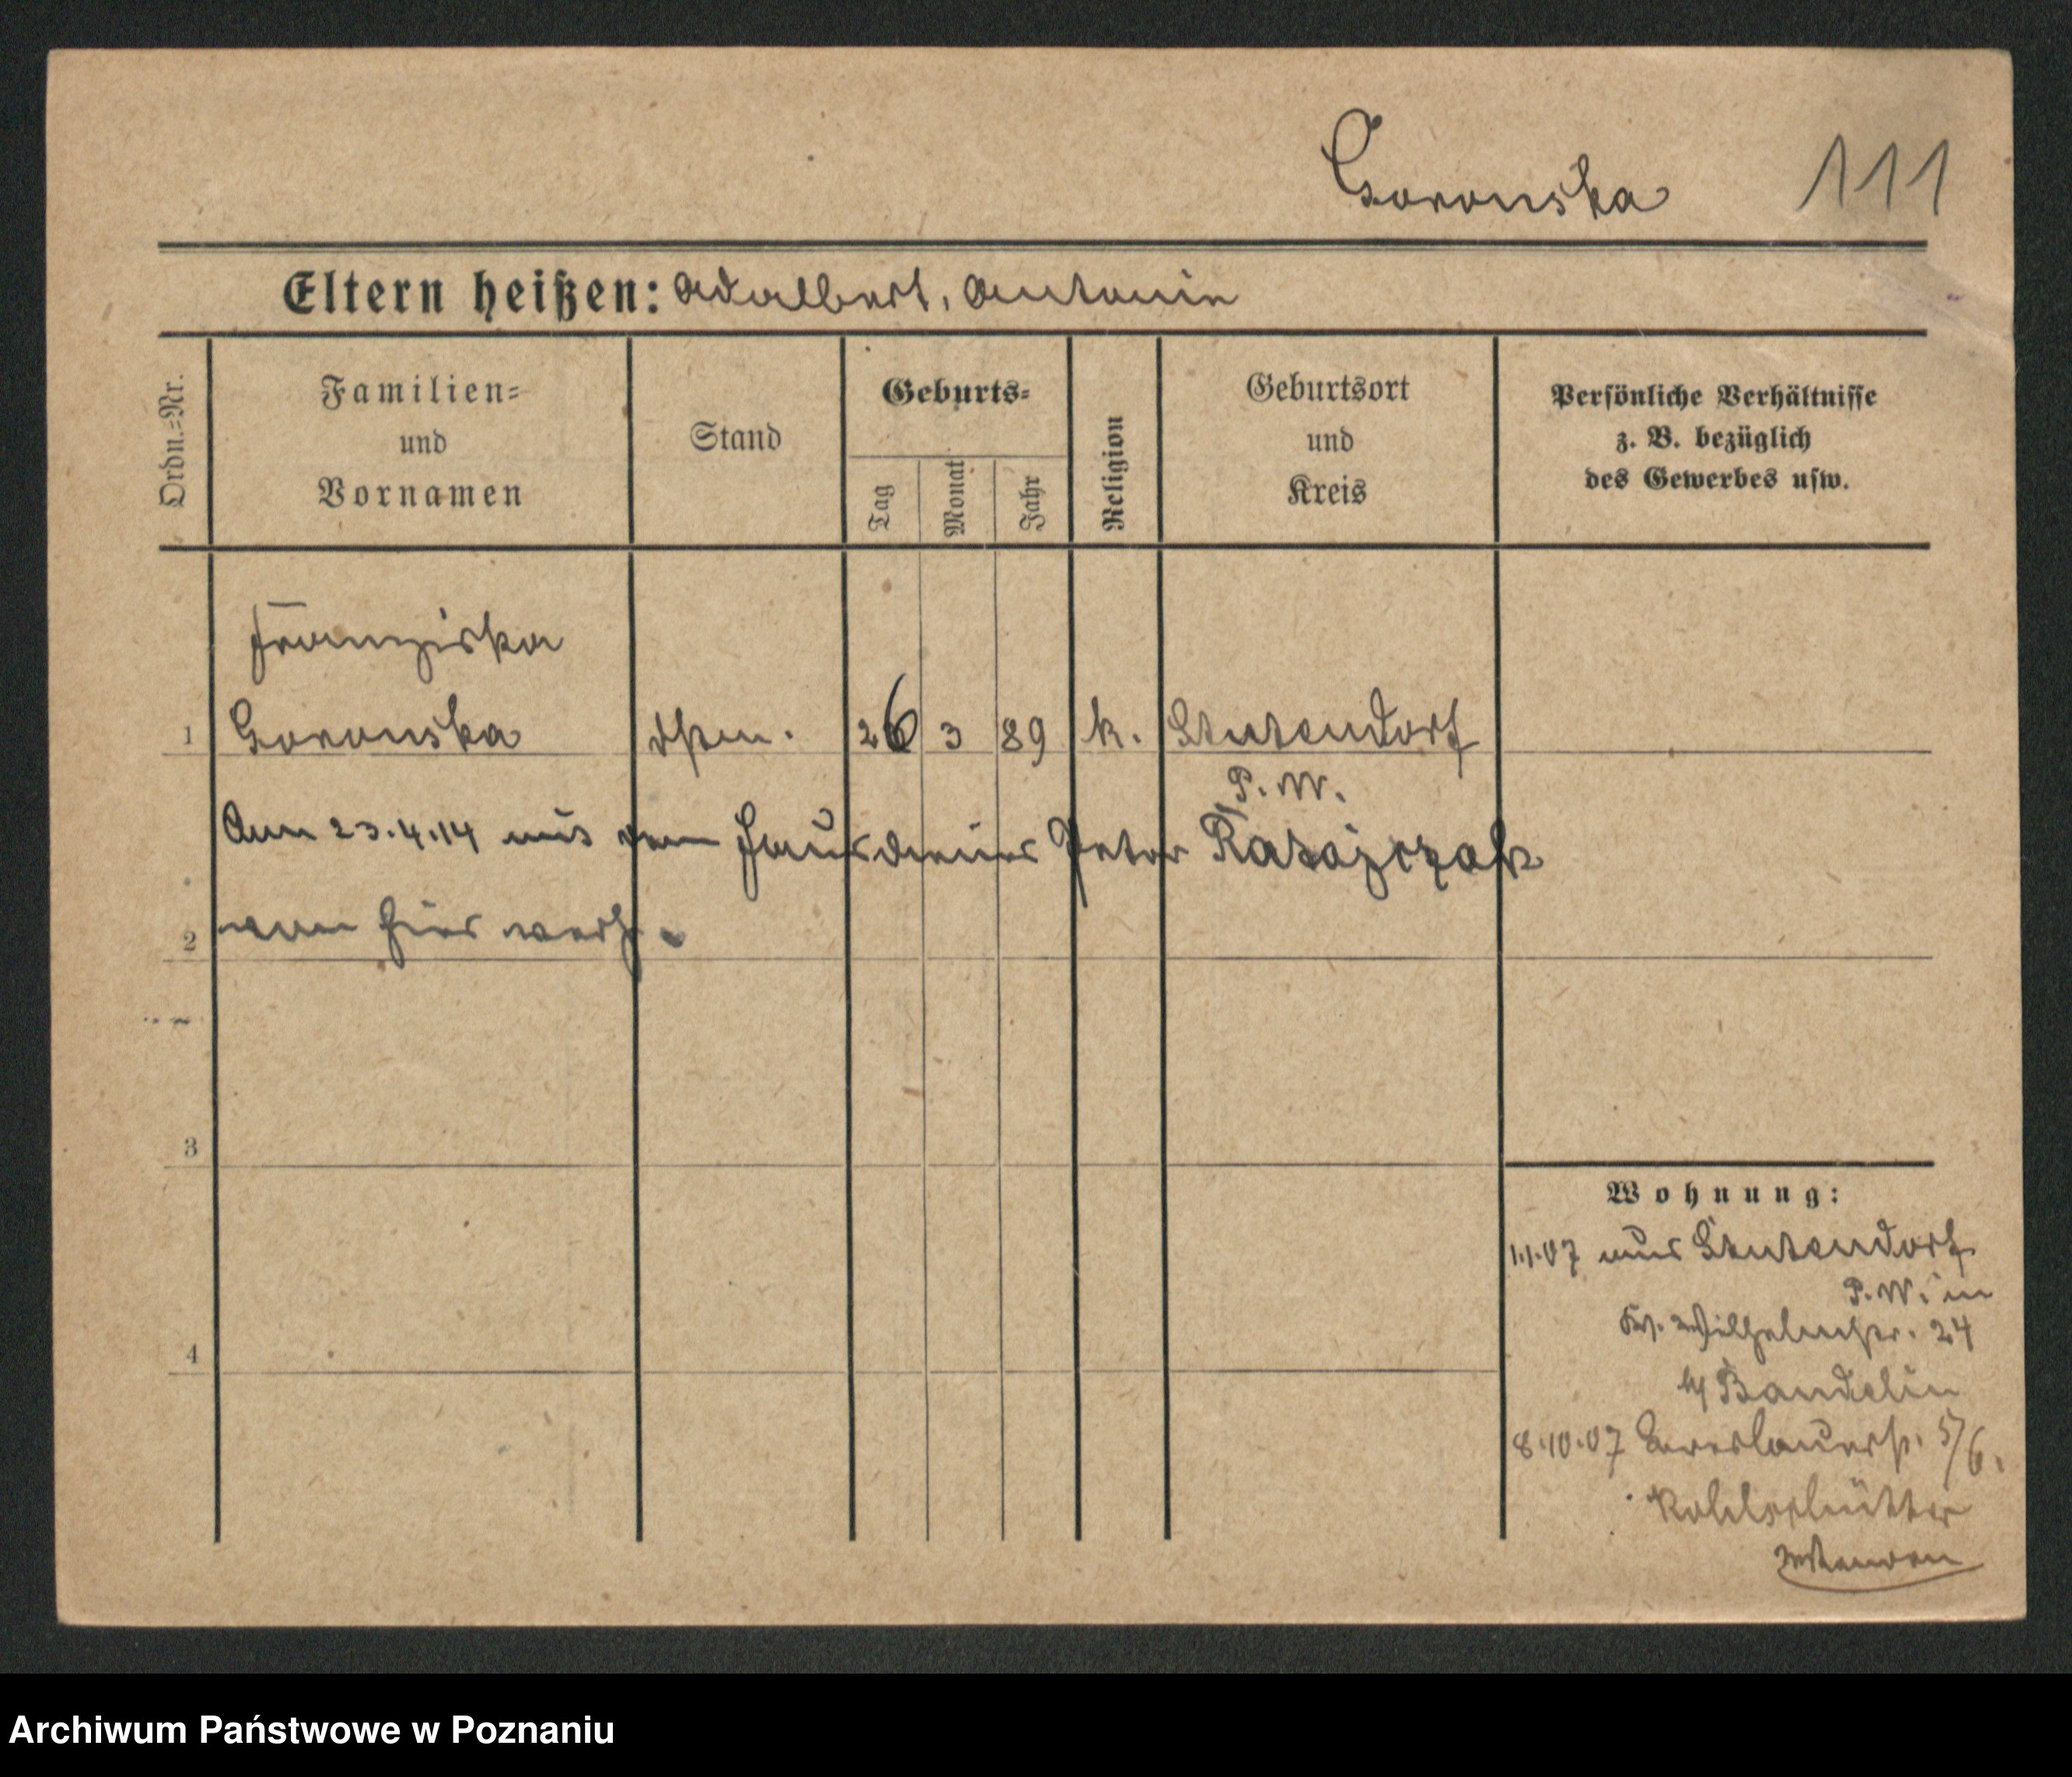 Goronska 111
Eltern heißen: Adalbert, Antonie
Ordn.=Nr.
Familien=
und
Vornamen
Stand
Geburts=
Tag
Monat
Jahr
Religion
Geburtsort
und
Kreis
Persönliche Verhältnisse
z. B. bezüglich
des Gewerbes usw.
Franziska
1 Goronska 26 3 89 k. Stutendorf
P. W.
23.4.14 mit dem Hausdiener Peter Ratajczak
2 von hier verh.
3
4
Wohnung:
1.1.07 aus Stutendorf
P. W. in
Wilhelmstr. 24
b/ Bandelin
8.10.07 5/6.
Kohlschütter
Archiwum Państwowe w Poznaniu